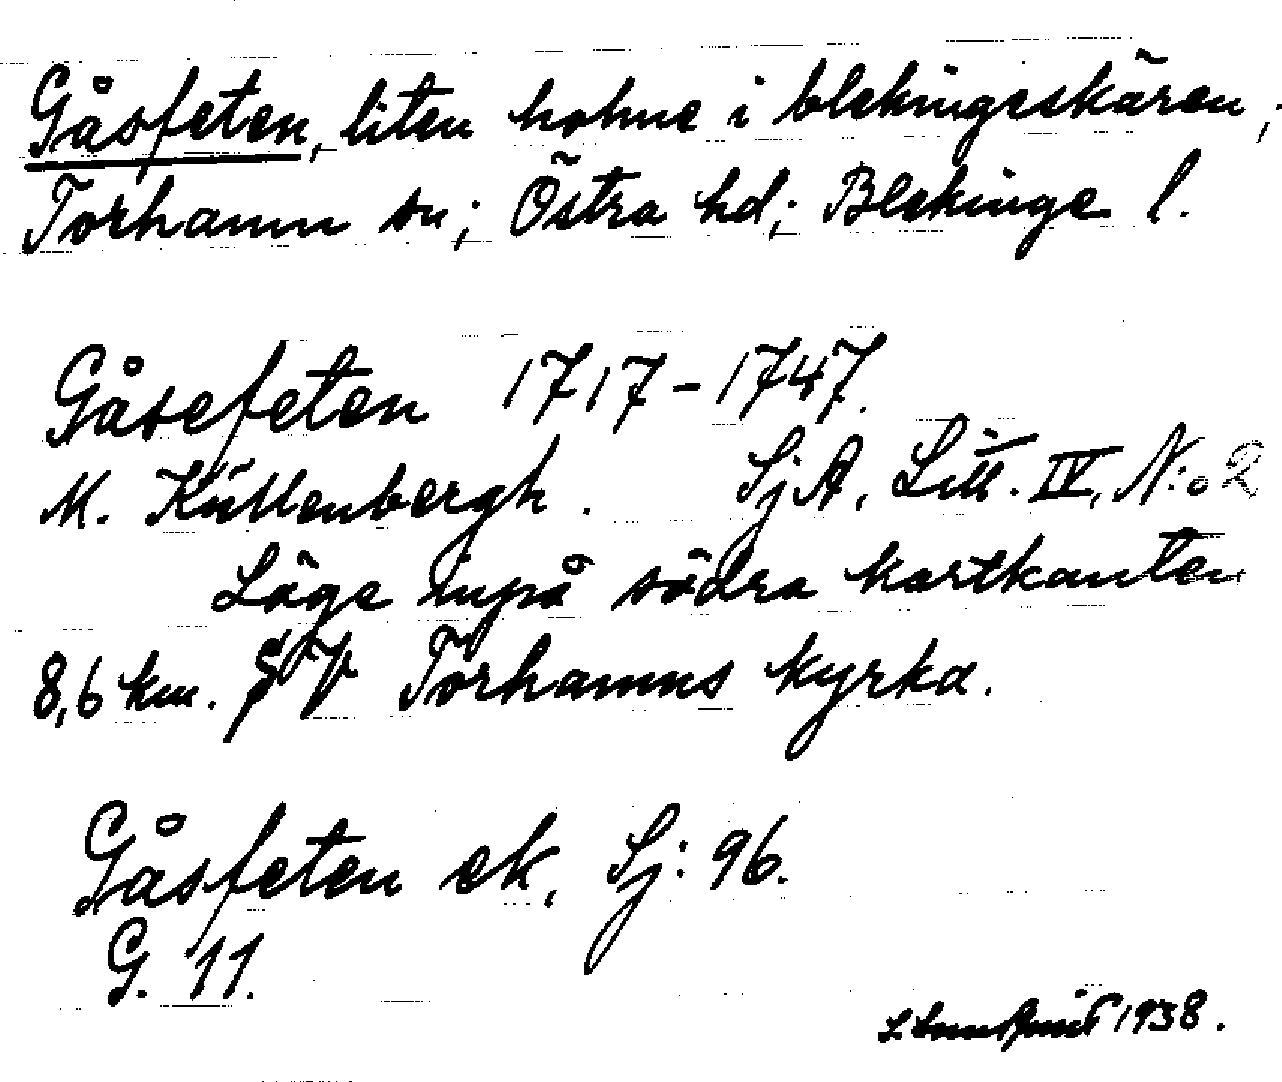 Gåsfeten, liten holme i blekingeskären;
Torhamn sn; Östra hd; Blekinge l.
Gåsefeten 1717-1747.
M. Küllenbergh. SjA, Litt. IV, N:o 2
Läge inpå södra kartkanten
8,6 km. SV Torhamns kyrka.
Gåsfeten ek, Sj: 96.
G. 11.
1938.